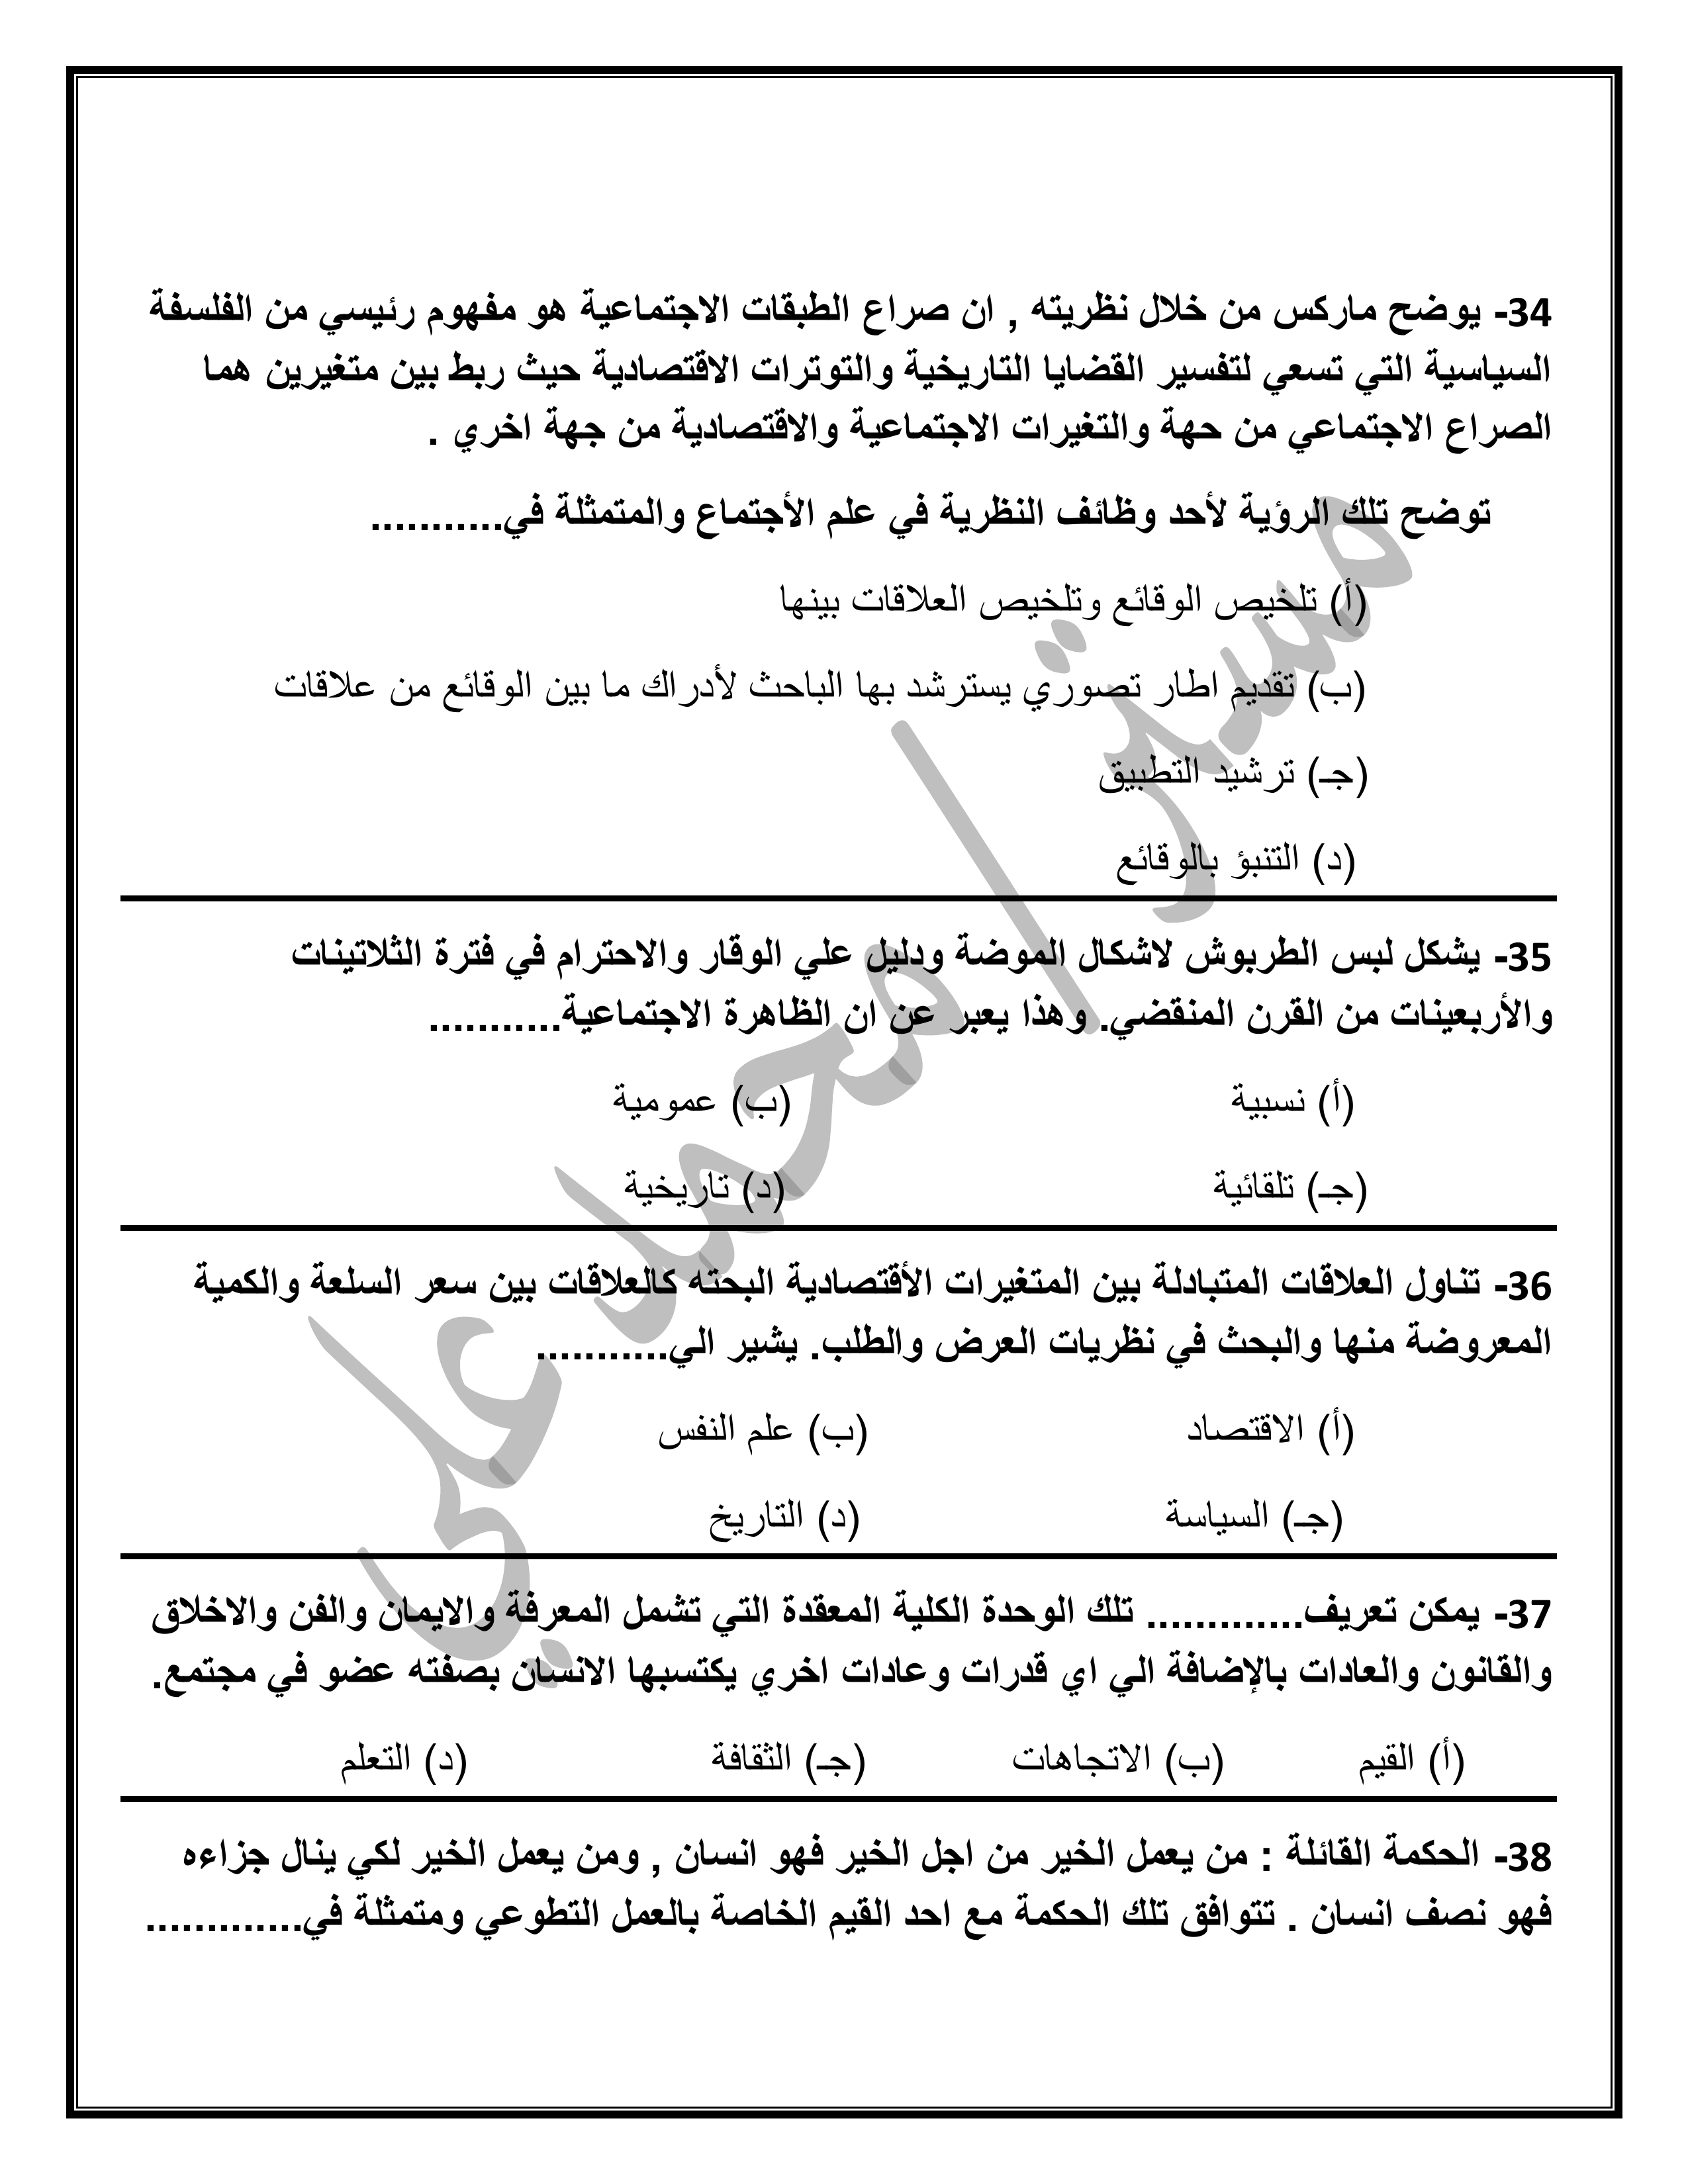 34- يوضح ماركس من خلال نظريته , ان صراع الطبقات الاجتماعية هو مفهوم رئيسي من الفلسفة
السياسية التي تسعي لتفسير القضايا التاريخية والتوترات الاقتصادية حيث ربط بين متغيرين هما
الصراع الاجتماعي من حهة والتغيرات الاجتماعية والاقتصادية من جهة اخري .
توضح تلك الرؤية لأحد وظائف النظرية في علم الأجتماع والمتمثلة في...........
(أ) تلخيص الوقائع وتلخيص العلاقات بينها
(ب) تقديم اطار تصوري يسترشد بها الباحث لأدراك ما بين الوقائع من علاقات
(جـ) ترشيد التطبيق
(د) التنبؤ بالوقائع
35- يشكل لبس الطربوش لاشكال الموضة ودليل علي الوقار والاحترام في فترة الثلاتينات
والأربعينات من القرن المنقضي. وهذا يعبر عن ان الظاهرة الاجتماعية...........
(أ) نسبية (ب) عمومية
(جـ) تلقائية (د) تاريخية
36- تناول العلاقات المتبادلة بين المتغيرات الأقتصادية البحته كالعلاقات بين سعر السلعة والكمية
المعروضة منها والبحث في نظريات العرض والطلب. يشير الي...........
(أ) الاقتصاد (ب) علم النفس
(جـ) السياسة (د) التاريخ
37- يمكن تعريف............. تلك الوحدة الكلية المعقدة التي تشمل المعرفة والايمان والفن والاخلاق
والقانون والعادات بالإضافة الي اي قدرات وعادات اخري يكتسبها الانسان بصفته عضو في مجتمع.
(أ) القيم (ب) الاتجاهات (جـ) الثقافة (د) التعلم
38- الحكمة القائلة : من يعمل الخير من اجل الخير فهو انسان , ومن يعمل الخير لكي ينال جزاءه
فهو نصف انسان . تتوافق تلك الحكمة مع احد القيم الخاصة بالعمل التطوعي ومتمثلة في.............
مستر / محمد علي